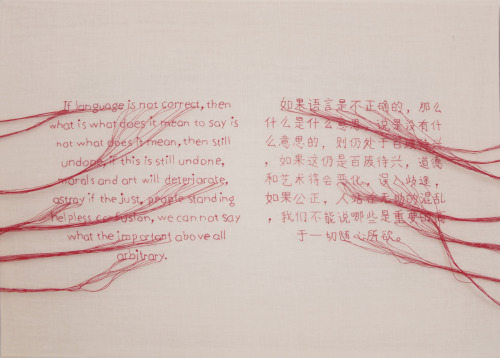 If language is not correct, then
what is what does it mean to say is
not what does it mean, then still
undone, if this is still undone,
morals and art will deteriorate,
astray if the just, people standing
helpless confusion, we can not say
what the important above all
arbitrary.
如果语言是不正确的，那么
什么是什么意思，说是没有什
么意思的，则仍处于百废待兴
，如果这仍是百废待兴，道德
和艺术将会恶化，误入歧途，
如果公正，人站在无助的混乱
，我们不能说哪些是重要的高
于一切随心所欲。